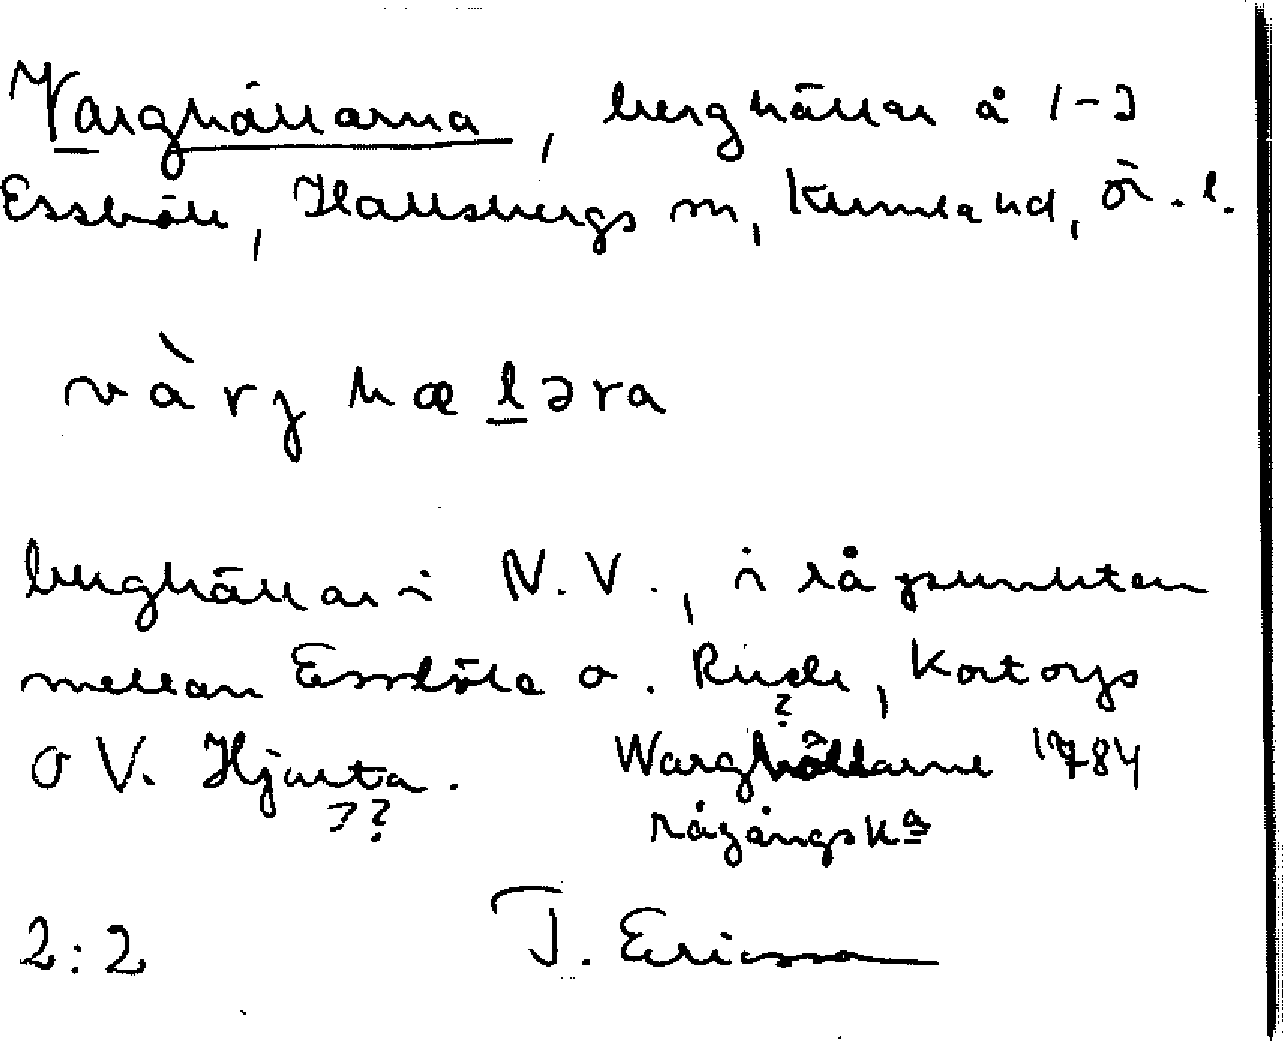 Varghällarna, berghällar å 1-2
Essböle, Hallsbergs sn, Kumla hd, ör. l.
vàrj hælǝra
berghällar i N.V., i råpunkten
mellan Essböle o. Rude, Kortorp
o V. Hjorta.
? ??
Warghällarne 1784
rågångska
2:2 T. Ericsson